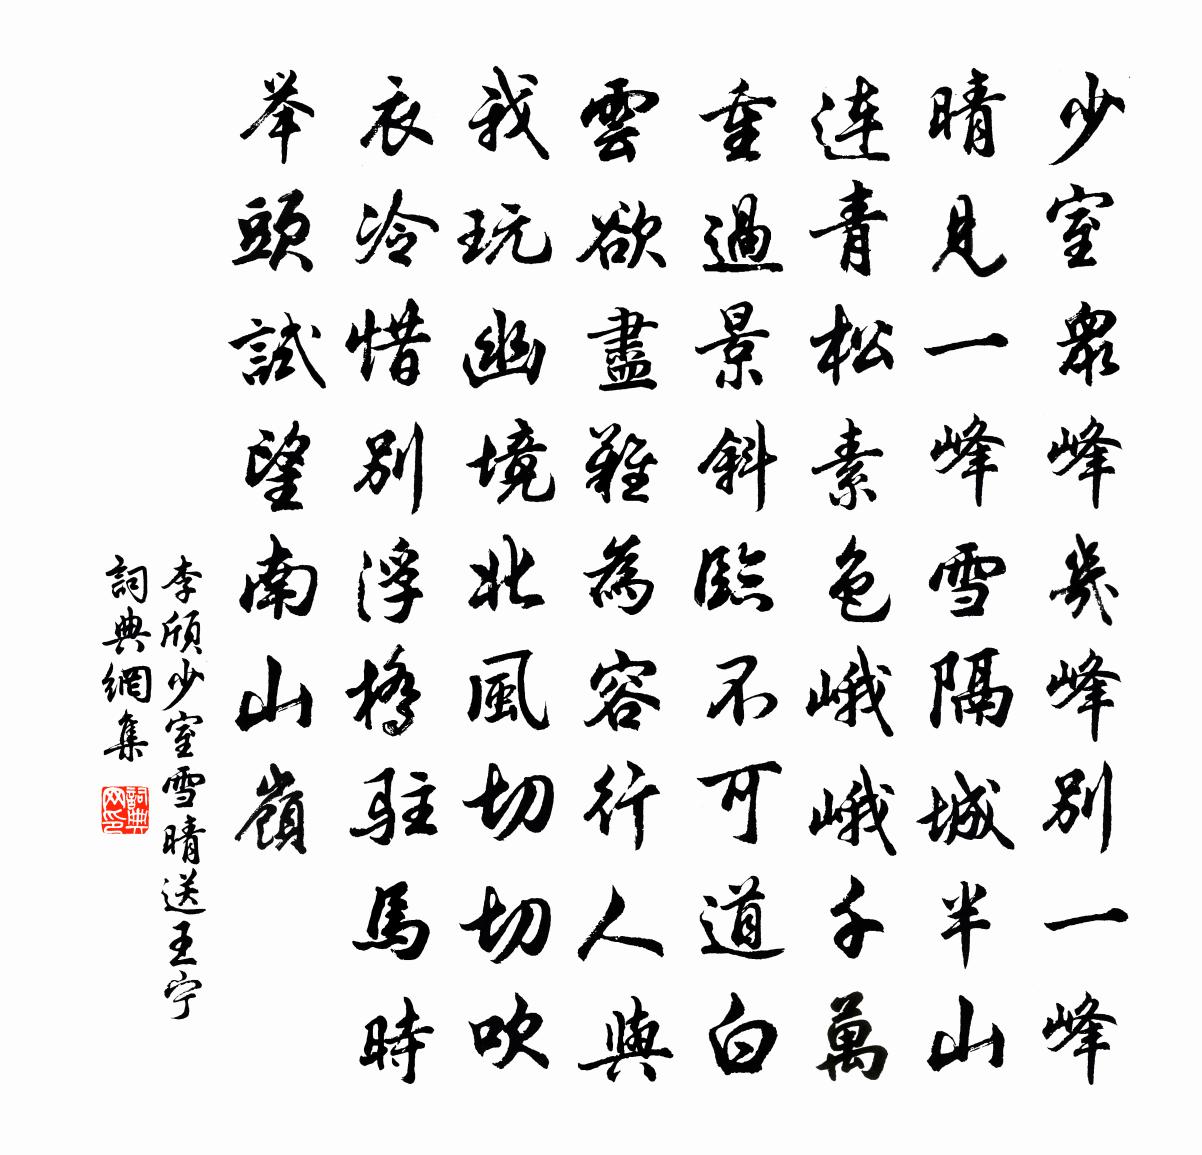 少室眾峰幾峰別一峰
晴見一峰雪隔城半山
連青松素色峨峨千萬
重過景斜臨不可道白
雲欲盡難為容行人與
我玩幽境北風切切吹
衣冷惜別浮橋駐馬時
举頭試望南山嶺
李頎少室雪晴送王宁
詞典網集
詞典
网印